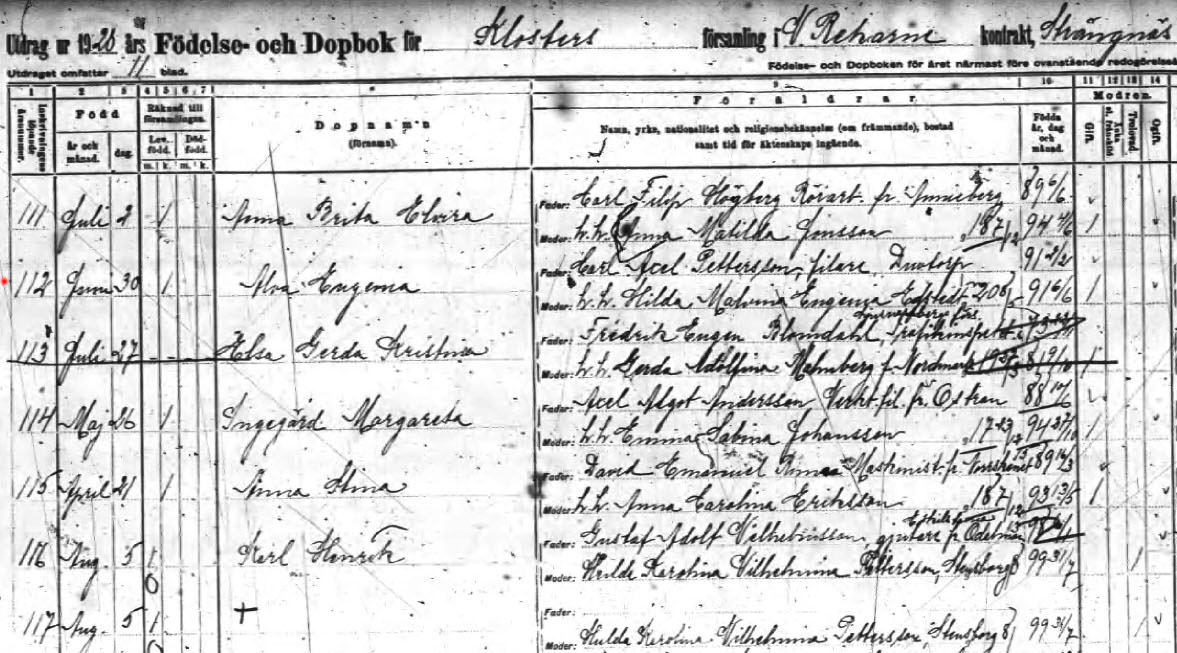 Utdrag ur 1920 års Födelse- och Dopbok för Klosters församling i V. Rekarne kontrakt, Strängnäs
Utdraget omfattar 11 blad. Födelse- och Dopboken för året närmast före ovanstående redogörelse
1 2 3 4 5 6 7 8 9 10 11 12 13 14
Född
Räknad till församlingen.
Dopnamn
(förnamn).
Föräldrar
Namn, yrke, nationalitet och religionsbekännelse (om främmande), bostad
samt tid för äktenskaps ingående.
Födda år, dag och månad.
Modren.
år och månad. dag. Lev. född. Död-född.
m. k. m. k.
Gift. Trolovad. Ogift.
Fader: Carl Filip Högberg Rörarb. fr. Anneberg 89 6/6
111 Juli 2 1 Anna Brita Elvira
Moder: h.h. Anna Matilda Jonsson 18 7/12 94 4/6 1
Fader: Carl Axel Pettersson, filare,
112 Juni 30 1 Alva Eugenia
Moder: h.h. Hilda Malvina Eugenia 91 6/6 1
Fader: Fredrik Eugen Blomdahl, Trafikinspekt.
113 Juli 27 Elsa Gerda Kristina
Moder: h.h. Gerda Adolfina Malmberg f.
Fader: Axel Algot Andersson Verkt. fil. fr. Östran 88
114 Maj 26 1 Ingegärd Margareta
Moder: h.h. Emma Sabina Johansson 17 94 1
Fader: David Emanuel Maskinist. fr. 89
115 April 21 1 Anna Stina
Moder: h.h. Anna Carolina Eriksson 18 7/12 93 13/5 1
Fader: Gustaf Adolf Vilhelmsson, gjutare fr.
116 Aug. 5 1 Karl Henrik
Moder: Hulda Karolina Vilhelmina Pettersson, Stensborg 8 99 31/7 1
Fader:
117 Aug. 5 1 +
Moder: Hulda Karolina Vilhelmina Pettersson, Stensborg 8 99 31/7 1